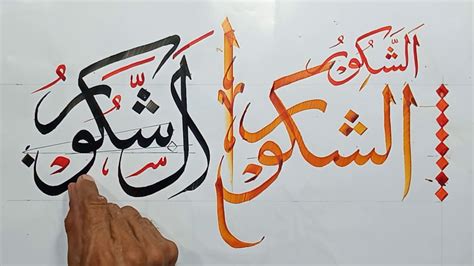 الشَّكُورُ
الشكور
الشَّكُورُ